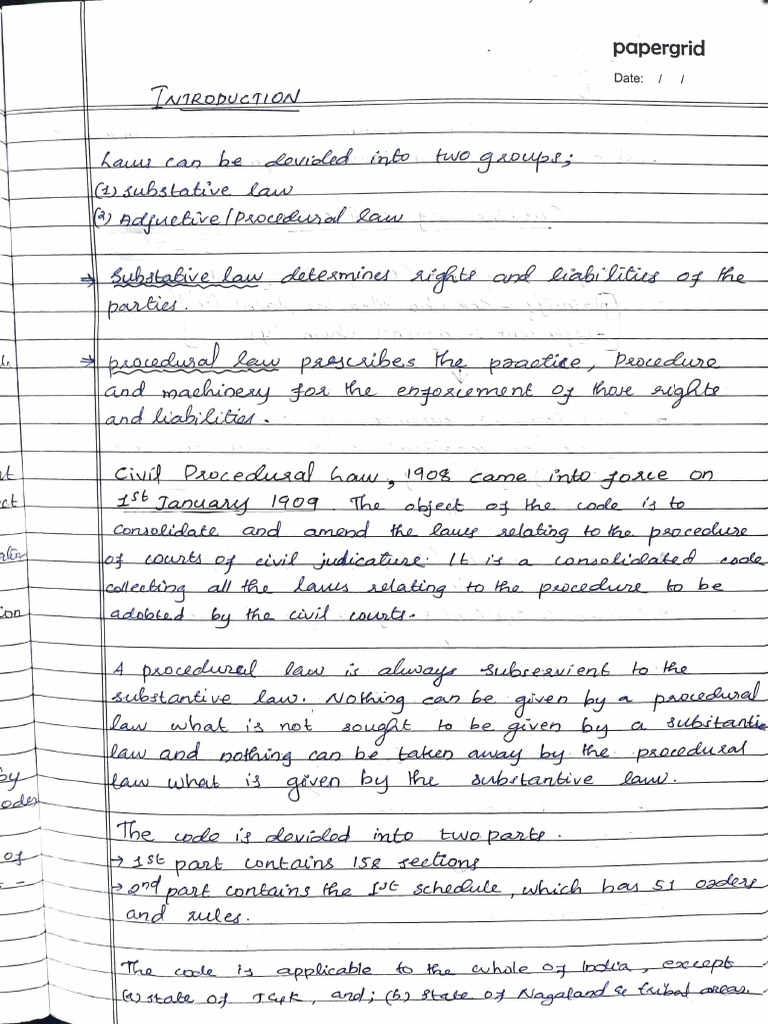 papergrid
Date: / /
INTRODUCTION
Laws can be devided into two groups;
(1) substative law
(2) Adjuctive/Procedural law
⇒ Substative law determines rights and liabilities of the
parties.
⇒ procedural law prescribes the practice, Procedure
and machinery for the enforcement of those rights
and liabilities.
Civil Procedural Law, 1908 came into force on
1st January 1909. The object of the code is to
consolidate and amend the laws relating to the procedure
of courts of civil judicature. It is a consolidated code
collecting all the laws relating to the procedure to be
adobted by the civil courts.
A procedural law is always subservient to the
substantive law. Nothing can be given by a procedural
law what is not sought to be given by a subitantive
law and nothing can be taken away by the procedural
law what is given by the substantive law.
The code is devided into two parts.
→ 1st part contains 158 sections
→ 2nd part contains the Ist schedule, which has 51 orders
and rules.
The code is applicable to the whole of India, except
(a) state of J&K, and; (b) state of Nagaland & tribal areas.